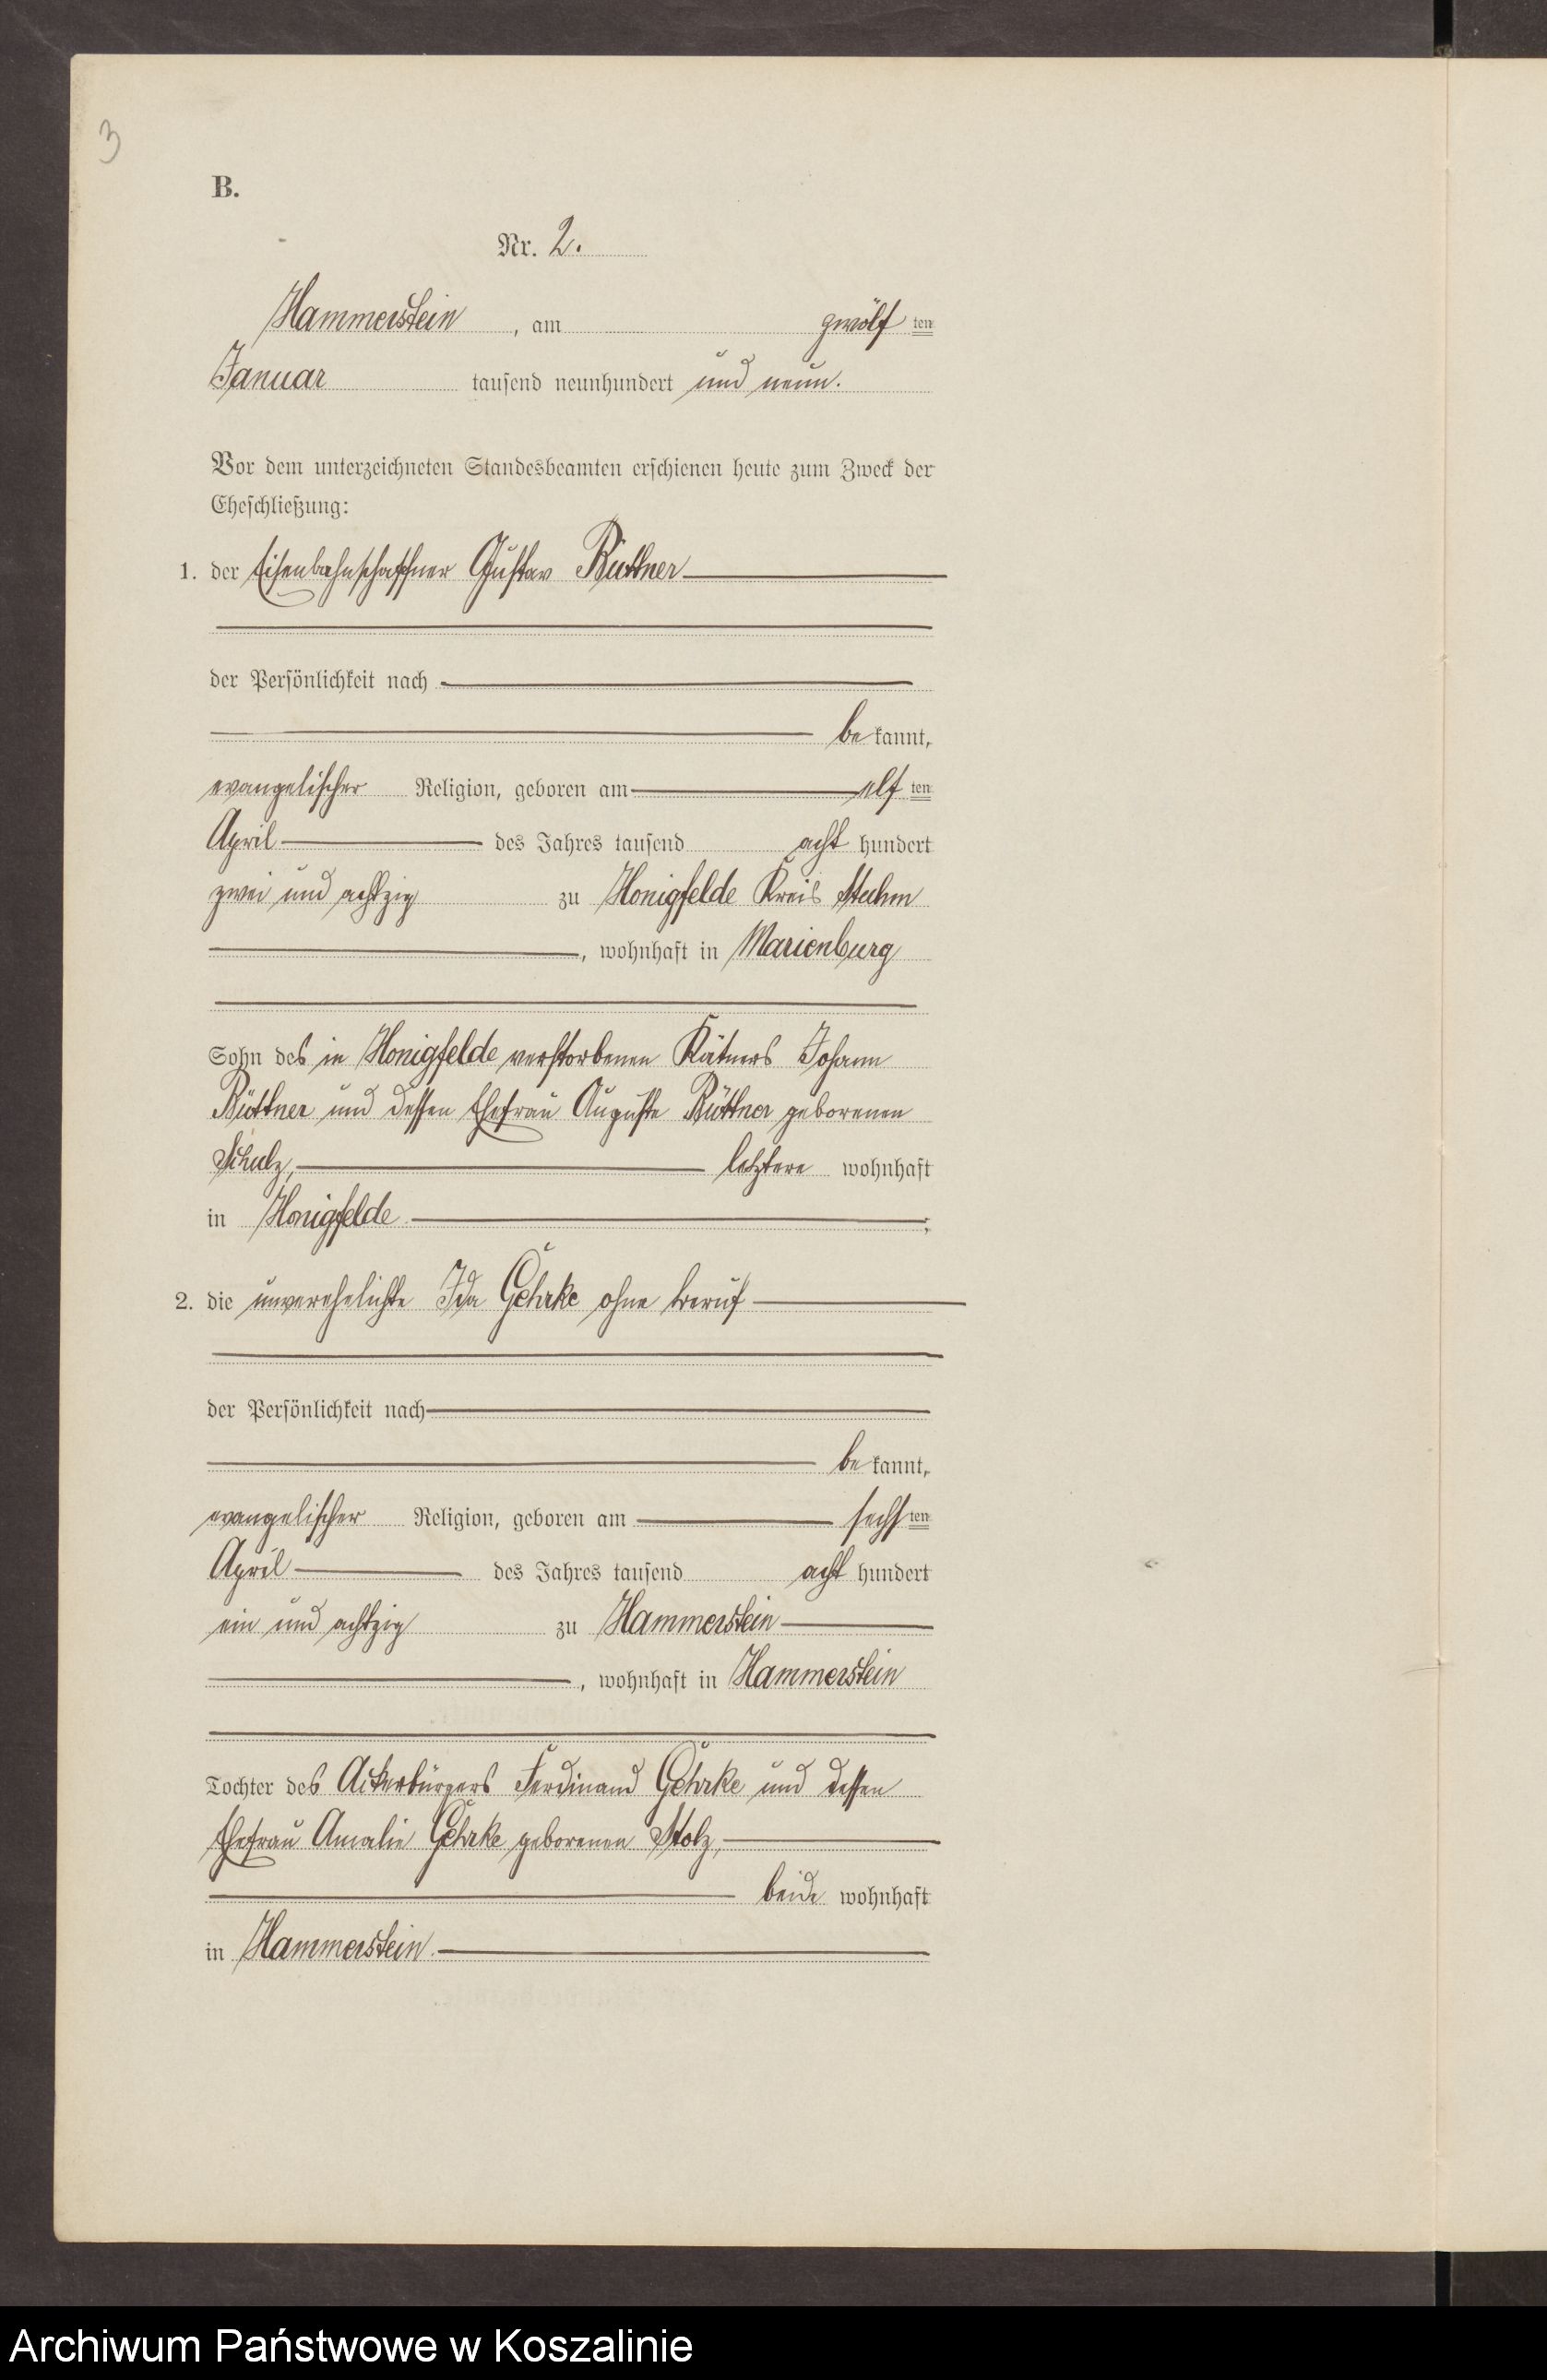 3
B.
Nr. 2.
Hammerstein, am zwölf ten
Januar tausend neunhundert und neun.
Vor dem unterzeichneten Standesbeamten erschienen heute zum Zweck der
Eheschließung:
1. der Eisenbahnschaffner Gustav Büttner
der Persönlichkeit nach
be kannt,
evangelischer Religion, geboren am elf ten
April des Jahres tausend acht hundert
zwei und achtzig zu Honigfelde Kreis Stuhm
, wohnhaft in Marienburg
Sohn des in Honigfelde verstorbenen Kätners Johann
Büttner und dessen Ehefrau Auguste Büttner geborenen
Schulz, letztere wohnhaft
in Honigfelde ;
2. die unverehelichte Ida Gehrke ohne Beruf
der Persönlichkeit nach
be kannt,
evangelischer Religion, geboren am sechs ten
April des Jahres tausend acht hundert
ein und achtzig zu Hammerstein
, wohnhaft in Hammerstein
Tochter des Ackerbürgers Ferdinand Gehrke und dessen
Ehefrau Amalie Gehrke geborenen Stolz,
beide wohnhaft
in Hammerstein.
Archiwum Państwowe w Koszalinie